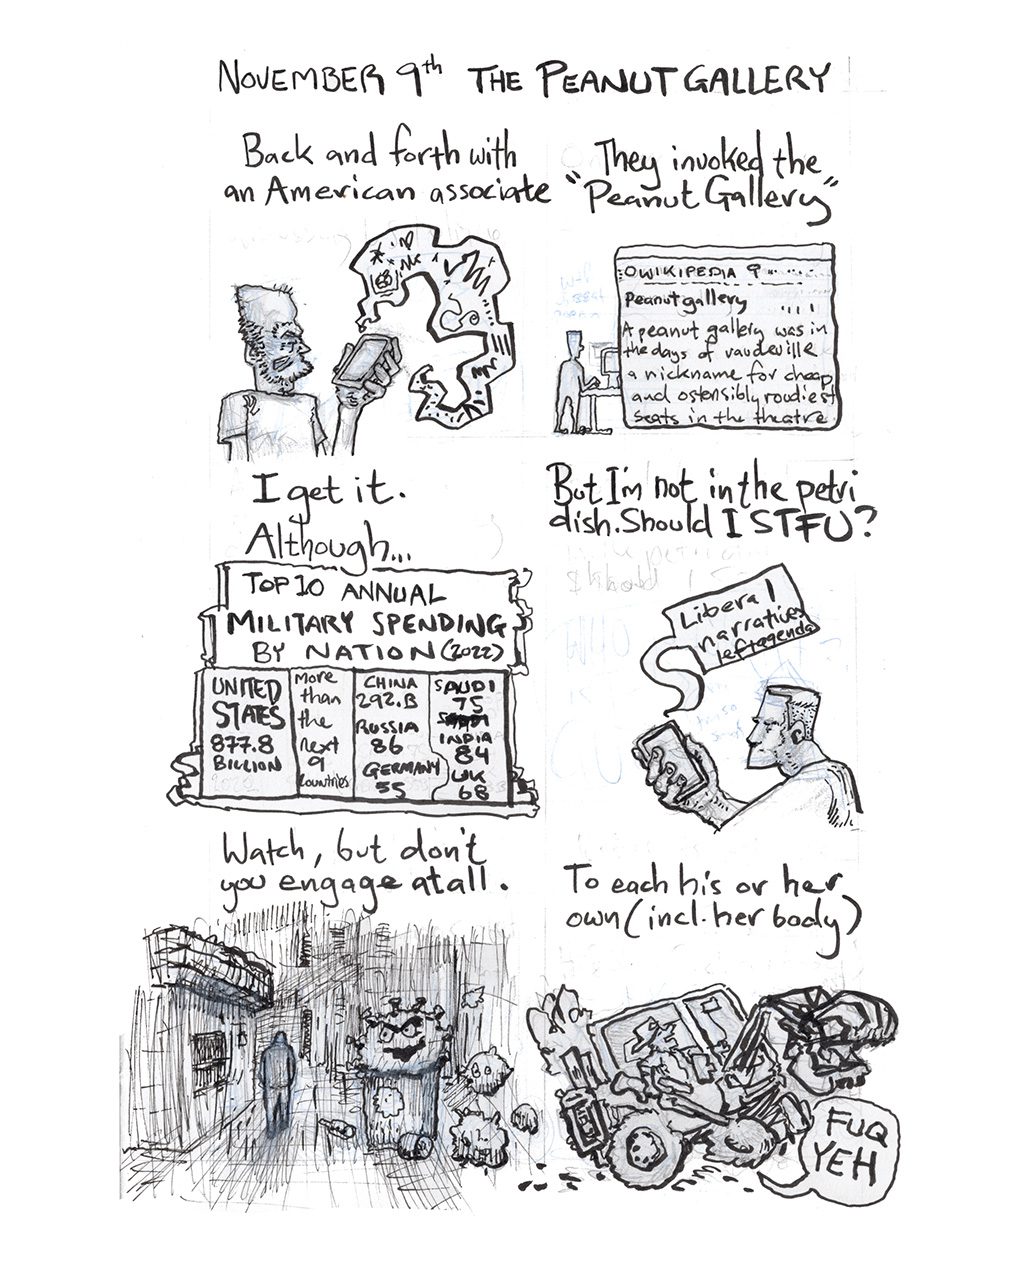 NOVEMBER 9th THE PEANUT GALLERY
Back and forth with
an American associate
They invoked the
"Peanut Gallery"
WIKIPEDIA
Peanut gallery
A peanut gallery was in
the days of vaudeville
a nickname for cheap
and ostensibly roudiest
seats in the theatre
I get it.
Although...
TOP 10 ANNUAL
MILITARY SPENDING
BY NATION (2022)
UNITED
STATES
877.8
BILLION
More
than
the
next
9
countries
CHINA
292.B
RUSSIA
86
GERMANY
55
SAUDI
75
INDIA
84
UK
68
But I'm not in the petri
dish. Should I STFU?
Liberal
narratives
leftagenda
Watch, but don't
you engage at all.
To each his or her
own (incl. her body)
FUQ
YEH